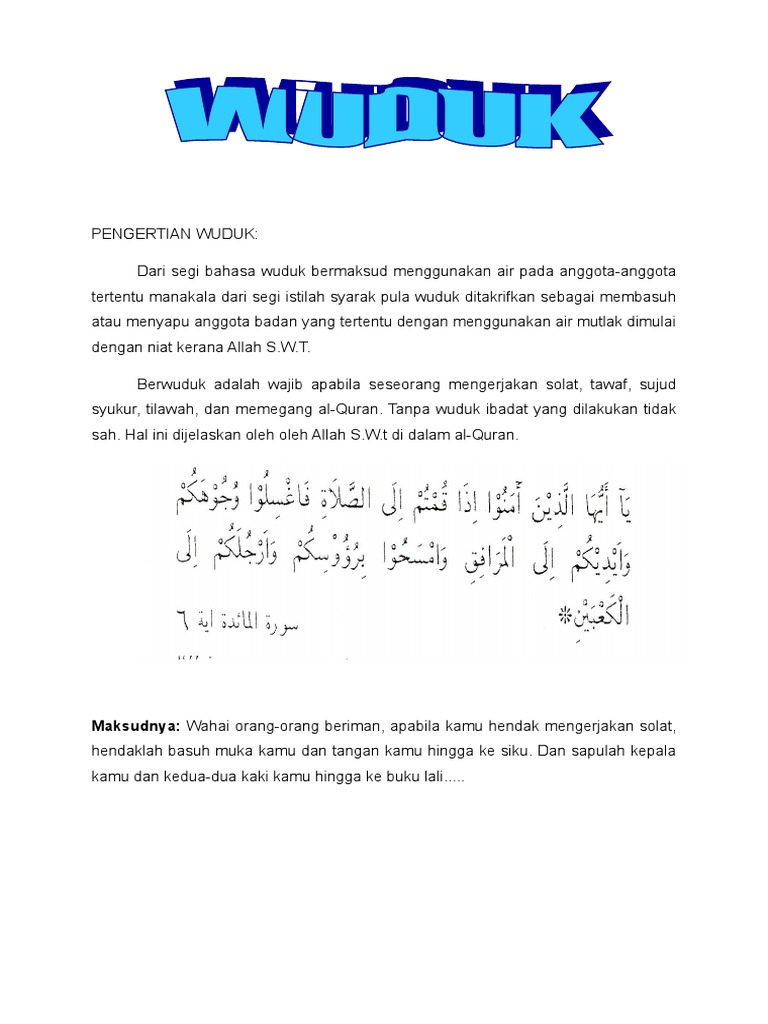 WUDUK
PENGERTIAN WUDUK:
Dari segi bahasa wuduk bermaksud menggunakan air pada anggota-anggota
tertentu manakala dari segi istilah syarak pula wuduk ditakrifkan sebagai membasuh
atau menyapu anggota badan yang tertentu dengan menggunakan air mutlak dimulai
dengan niat kerana Allah S.W.T.
Berwuduk adalah wajib apabila seseorang mengerjakan solat, tawaf, sujud
syukur, tilawah, dan memegang al-Quran. Tanpa wuduk ibadat yang dilakukan tidak
sah. Hal ini dijelaskan oleh oleh Allah S.W.t di dalam al-Quran.
يَآ أَيُّهَا الَّذِيْنَ أٓمَنُوْا اِذَا قُمْتُمْ اِلَى الصَّلَاةِ فَاغْسِلُوْا وُجُوْهَكُمْ
وَاَيْدِيْكُمْ اِلَى الْمَرَافِقِ وَامْسَحُوْا بِرُؤُوْسِكُمْ وَاَرْجُلَكُمْ اِلَى
الْكَعْبَيْنِ* سورة المائدة اية ٦
Maksudnya: Wahai orang-orang beriman, apabila kamu hendak mengerjakan solat,
hendaklah basuh muka kamu dan tangan kamu hingga ke siku. Dan sapulah kepala
kamu dan kedua-dua kaki kamu hingga ke buku lali.....